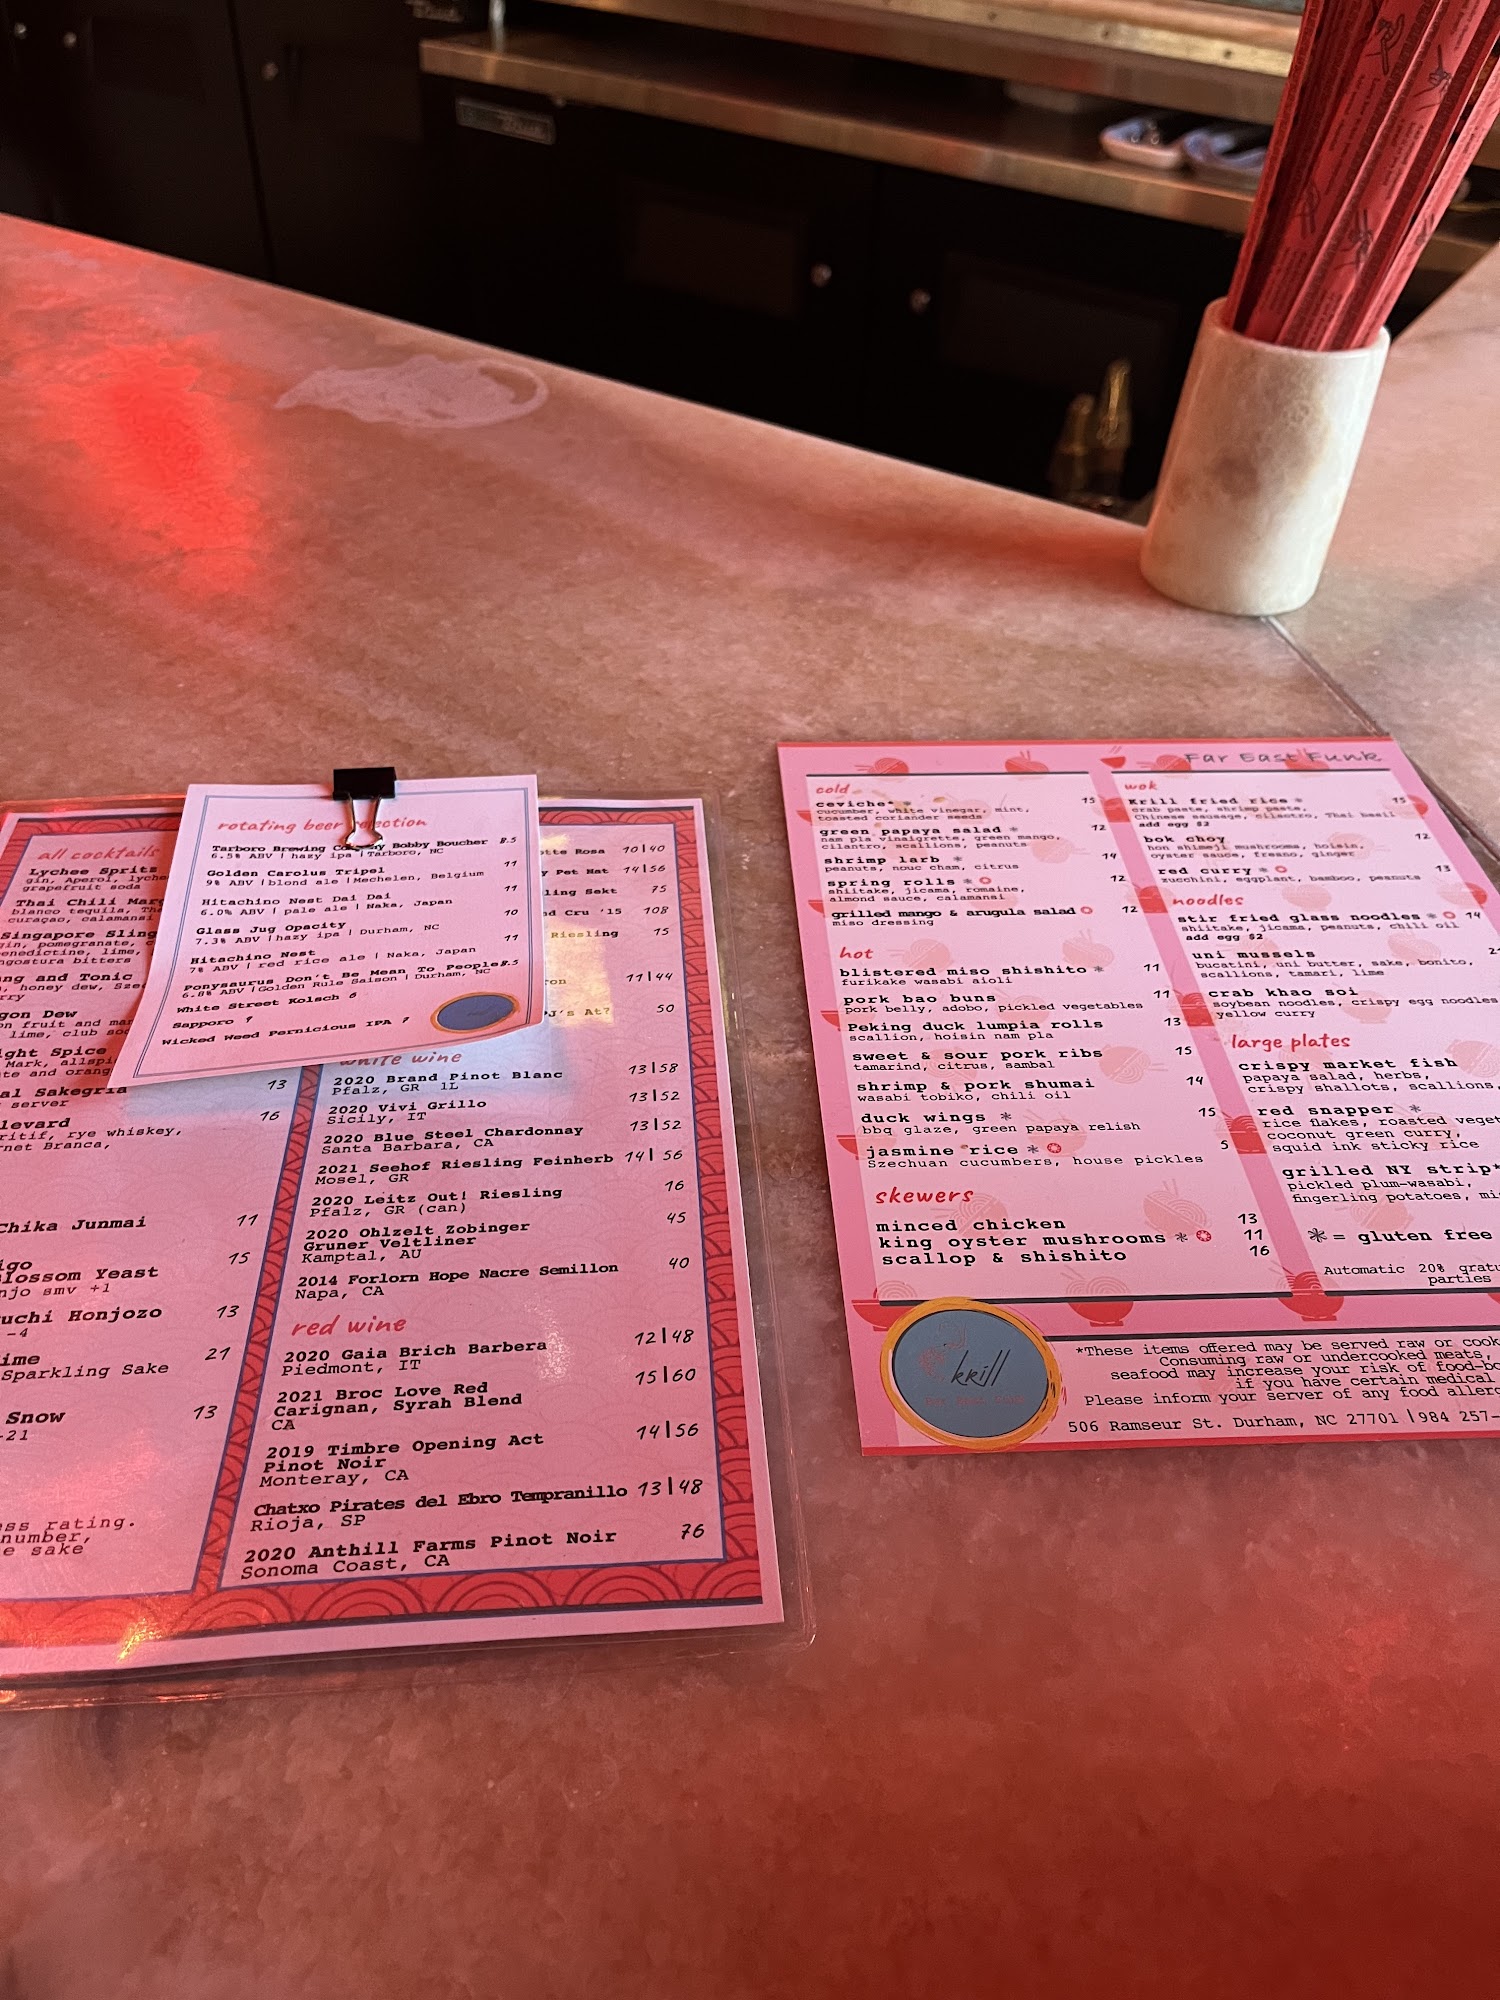 rotating beer
Tarboro Brewing Bobby Boucher 8.5
6.5% ABV | hazy ipa | Tarboro, NC
Golden Carolus Tripel 11
9% ABV | blond ale | Mechelen, Belgium
Hitachino Nest Dai Dai 11
6.0% ABV | pale ale | Naka, Japan
Glass Jug Opacity 10
7.3% ABV | hazy ipa | Durham, NC
Hitachino Nest 11
7% ABV | red rice ale | Naka, Japan
Ponysaurus Don't Be Mean To People 8.5
6.8% ABV | Golden Rule Saison | Durham, NC
White Street Kolsch 6
Sapporo
Wicked Weed Pernicious IPA 7
all cocktails
Lychee Spritz
gin, Aperol,
grapefruit soda
Thai Chili
blanco tequila,
curaçao, calamansi
Singapore Sling
gin, pomegranate,
benedictine, lime,
angostura bitters
and Tonic
honey dew,
Dew
fruit and
lime, club
Spice
Mark,
and
13
server
16
rye whiskey,
Branca,
Chika Junmai 11
15
Blossom Yeast
smv +1
Honjozo 13
-4
21
Sparkling Sake
Snow 13
-21
rating.
number,
sake
Rosa 10|40
Pet Nat 14|56
Sekt 75
Cru '15 108
Riesling 15
11|44
At? 50
white wine
2020 Brand Pinot Blanc 13|58
Pfalz, GR 1L
2020 Vivi Grillo 13|52
Sicily, IT
2020 Blue Steel Chardonnay 13|52
Santa Barbara, CA
2021 Seehof Riesling Feinherb 14|56
Mosel, GR
2020 Leitz Out! Riesling 16
Pfalz, GR (can)
2020 Ohlzelt Zobinger 45
Gruner Veltliner
Kamptal, AU
2014 Forlorn Hope Nacre Semillon 40
Napa, CA
red wine
2020 Gaia Brich Barbera 12|48
Piedmont, IT
2021 Broc Love Red 15|60
Carignan, Syrah Blend
CA
2019 Timbre Opening Act 14|56
Pinot Noir
Monteray, CA
Chatxo Pirates del Ebro Tempranillo 13|48
Rioja, SP
2020 Anthill Farms Pinot Noir 76
Sonoma Coast, CA
Far East Funk
cold
ceviche* 15
cucumber, white vinegar, mint,
toasted coriander seeds
green papaya salad 12
nam pla vinaigrette, green mango,
cilantro, scallions, peanuts
shrimp larb 14
peanuts, nouc cham, citrus
spring rolls 12
shiitake, jicama, romaine,
almond sauce, calamansi
grilled mango & arugula salad 12
miso dressing
hot
blistered miso shishito 11
furikake wasabi aioli
pork bao buns 11
pork belly, adobo, pickled vegetables
Peking duck lumpia rolls 13
scallion, hoisin nam pla
sweet & sour pork ribs 15
tamarind, citrus, sambal
shrimp & pork shumai 14
wasabi tobiko, chili oil
duck wings 15
bbq glaze, green papaya relish
jasmine rice 5
Szechuan cucumbers, house pickles
skewers
minced chicken 13
king oyster mushrooms 11
scallop & shishito 16
wok
Krill fried rice 15
crab paste, shrimp paste,
Chinese sausage, cilantro, Thai basil
add egg $2
bok choy 12
hon shimeji mushrooms, hoisin,
oyster sauce, fresno, ginger
red curry 13
zucchini, eggplant, bamboo, peanuts
noodles
stir fried glass noodles 14
shiitake, jicama, peanuts, chili oil
add egg $2
uni mussels
bucatini, uni butter, sake, bonito,
scallions, tamari, lime
crab khao soi
soybean noodles, crispy egg noodles
yellow curry
large plates
crispy market fish
papaya salad, herbs,
crispy shallots, scallions,
red snapper
rice flakes, roasted
coconut green curry,
squid ink sticky rice
grilled NY strip*
pickled plum-wasabi,
fingerling potatoes,
= gluten free
Automatic 20%
parties
krill
*These items offered may be served raw or
Consuming raw or undercooked meats,
seafood may increase your risk of
if you have certain medical
Please inform your server of any food
506 Ramseur St. Durham, NC 27701 | 984 257-